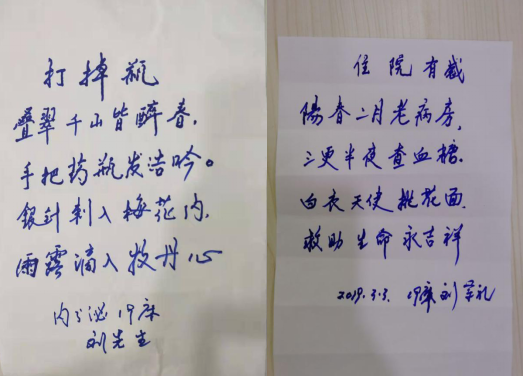 打掉瓶
叠翠千山皆醉春,
手把药瓶发浩吟。
银针刺入梅花内,
雨露滴入牡丹心
内分泌19床
刘先生
住院有感
陽春二月老病房,
三更半夜查血糖.
白衣天使桃花面.
救助生命永吉祥
2019.3.3. 19床刘